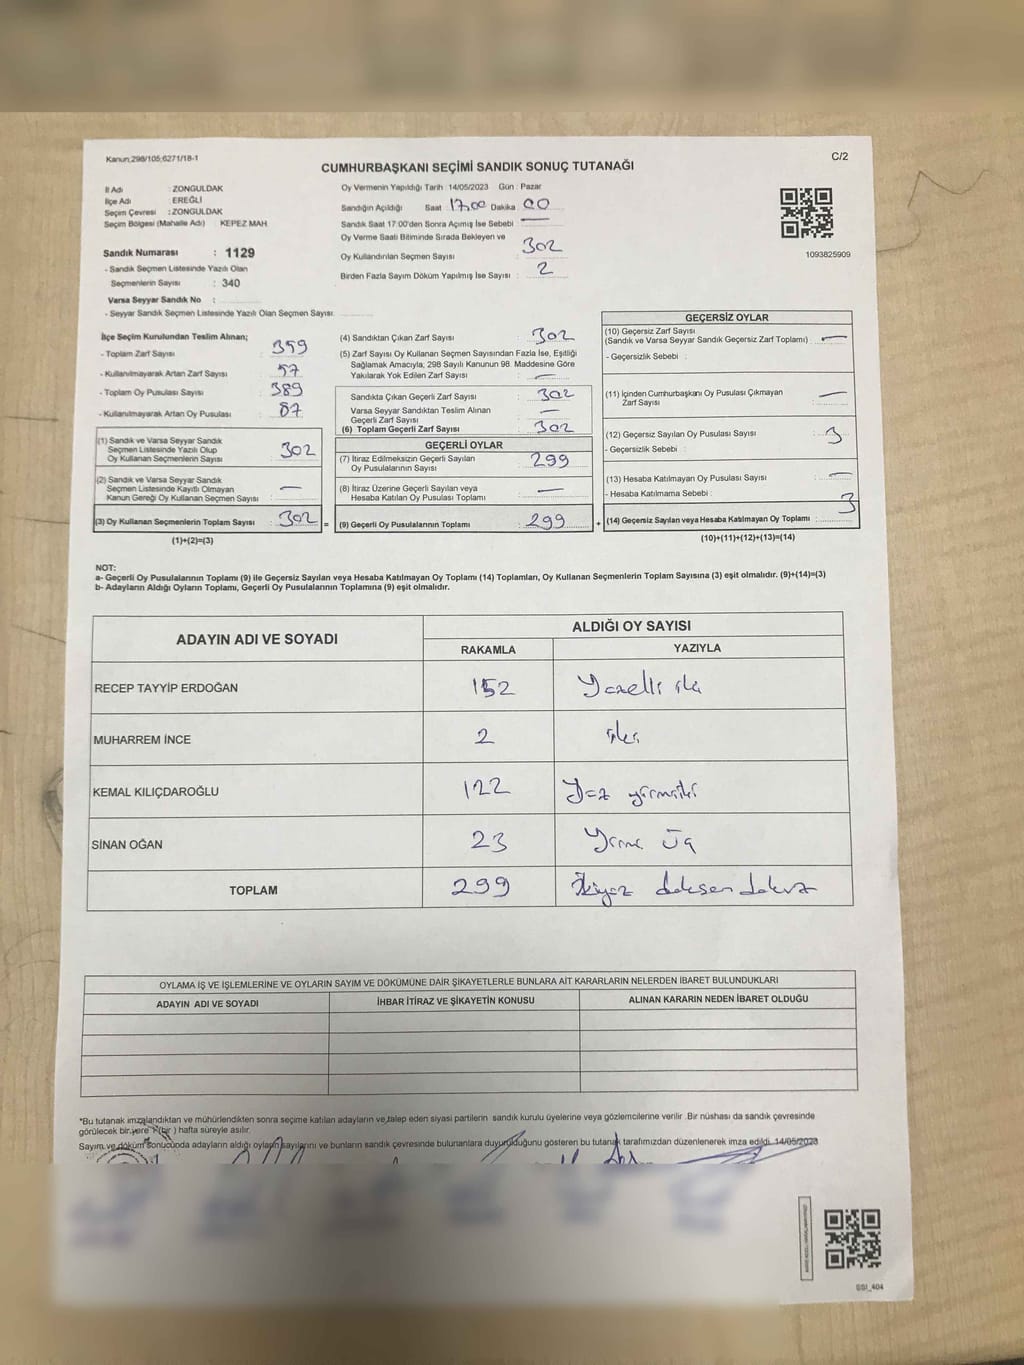 Kanun;298/105;6271/18-1
C/2
CUMHURBAŞKANI SEÇİMİ SANDIK SONUÇ TUTANAĞI
İl Adı : ZONGULDAK
İlçe Adı : EREĞLİ
Seçim Çevresi : ZONGULDAK
Seçim Bölgesi (Mahalle Adı) : KEPEZ MAH
Sandık Numarası : 1129
- Sandık Seçmen Listesinde Yazılı Olan
Seçmenlerin Sayısı : 340
Varsa Seyyar Sandık No :
- Seyyar Sandık Seçmen Listesinde Yazılı Olan Seçmen Sayısı:
Oy Vermenin Yapıldığı Tarih : 14/05/2023 Gün : Pazar
Sandığın Açıldığı Saat 17,00 Dakika 00
Sandık Saat 17:00'den Sonra Açılmış İse Sebebi : —
Oy Verme Saati Bitiminde Sırada Bekleyen ve
Oy Kullandırılan Seçmen Sayısı : 302
Birden Fazla Sayım Döküm Yapılmış İse Sayısı : 2
1093825909
İlçe Seçim Kurulundan Teslim Alınan;
- Toplam Zarf Sayısı : 359
- Kullanılmayarak Artan Zarf Sayısı : 57
- Toplam Oy Pusulası Sayısı : 389
- Kullanılmayarak Artan Oy Pusulası : 87
(1) Sandık ve Varsa Seyyar Sandık
Seçmen Listesinde Yazılı Olup
Oy Kullanan Seçmenlerin Sayısı : 302
(2) Sandık ve Varsa Seyyar Sandık
Seçmen Listesinde Kayıtlı Olmayan
Kanun Gereği Oy Kullanan Seçmen Sayısı : —
(3) Oy Kullanan Seçmenlerin Toplam Sayısı : 302
(1)+(2)=(3)
=
(4) Sandıktan Çıkan Zarf Sayısı : 302
(5) Zarf Sayısı Oy Kullanan Seçmen Sayısından Fazla İse, Eşitliği
Sağlamak Amacıyla, 298 Sayılı Kanunun 98. Maddesine Göre
Yakılarak Yok Edilen Zarf Sayısı : —
Sandıkta Çıkan Geçerli Zarf Sayısı : 302
Varsa Seyyar Sandıktan Teslim Alınan
Geçerli Zarf Sayısı : —
(6) Toplam Geçerli Zarf Sayısı : 302
GEÇERLİ OYLAR
(7) İtiraz Edilmeksizin Geçerli Sayılan
Oy Pusulalarının Sayısı : 299
(8) İtiraz Üzerine Geçerli Sayılan veya
Hesaba Katılan Oy Pusulası Toplamı : —
(9) Geçerli Oy Pusulalarının Toplamı : 299
+
GEÇERSİZ OYLAR
(10) Geçersiz Zarf Sayısı
(Sandık ve Varsa Seyyar Sandık Geçersiz Zarf Toplamı) : —
- Geçersizlik Sebebi :
(11) İçinden Cumhurbaşkanı Oy Pusulası Çıkmayan
Zarf Sayısı : —
(12) Geçersiz Sayılan Oy Pusulası Sayısı : 3
- Geçersizlik Sebebi :
(13) Hesaba Katılmayan Oy Pusulası Sayısı : —
- Hesaba Katılmama Sebebi :
(14) Geçersiz Sayılan veya Hesaba Katılmayan Oy Toplamı : 3
(10)+(11)+(12)+(13)=(14)
NOT:
a- Geçerli Oy Pusulalarının Toplamı (9) ile Geçersiz Sayılan veya Hesaba Katılmayan Oy Toplamı (14) Toplamları, Oy Kullanan Seçmenlerin Toplam Sayısına (3) eşit olmalıdır. (9)+(14)=(3)
b- Adayların Aldığı Oyların Toplamı, Geçerli Oy Pusulalarının Toplamına (9) eşit olmalıdır.
ADAYIN ADI VE SOYADI
ALDIĞI OY SAYISI
RAKAMLA YAZIYLA
RECEP TAYYİP ERDOĞAN 152 Yüzelli iki
MUHARREM İNCE 2 iki
KEMAL KILIÇDAROĞLU 122 Yüz yirmiiki
SİNAN OĞAN 23 Yirmi üç
TOPLAM 299 İkiyüz doksan dokuz
OYLAMA İŞ VE İŞLEMLERİNE VE OYLARIN SAYIM VE DÖKÜMÜNE DAİR ŞİKAYETLERLE BUNLARA AİT KARARLARIN NELERDEN İBARET BULUNDUKLARI
ADAYIN ADI VE SOYADI İHBAR İTİRAZ VE ŞİKAYETİN KONUSU ALINAN KARARIN NEDEN İBARET OLDUĞU
*Bu tutanak imzalandıktan ve mühürlendikten sonra seçime katılan adayların ve talep eden siyasi partilerin sandık kurulu üyelerine veya gözlemcilerine verilir. Bir nüshası da sandık çevresinde
görülecek bir yere 1 (bir) hafta süreyle asılır.
Sayım ve döküm sonucunda adayların aldığı oyların sayılarını ve bunların sandık çevresinde bulunanlara duyurulduğunu gösteren bu tutanak tarafımızdan düzenlenerek imza edildi. 14/05/2023
SSI_404